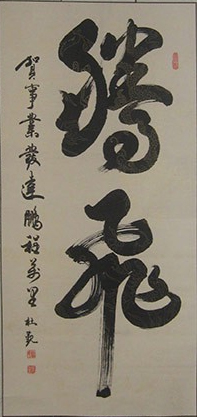 騰飛
賀事業發達鵬程萬里